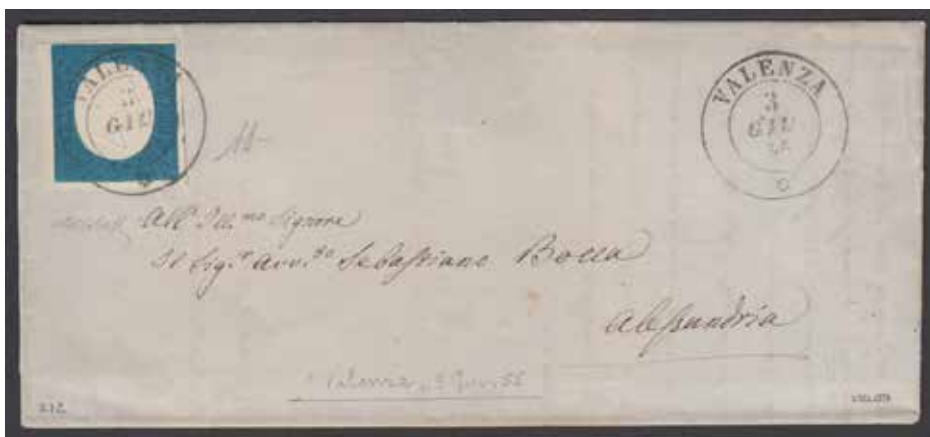 VALENZA
3
GIU
VALENZA
3
GIU
All' Ill.mo Signore
Il Sig.r Avv.to Sebastiano Bocca
Alessandria
Valenza 3